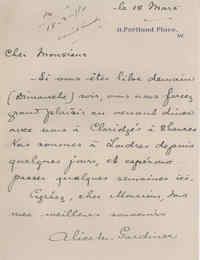 le 18 Mars
11. Portland Place,
W.
Cher Monsieur
Si vous êtes libre demain
(Dimanche) soir, vous nous feriez
grand plaisir en venant dîner
avec nous à Claridge's à 8 heures
Nous sommes à Londres depuis
quelques jours, et espérons
passer quelques semaines ici.
Agréez, cher Monsieur, tous
mes meilleurs souvenirs
Alice Gardiner